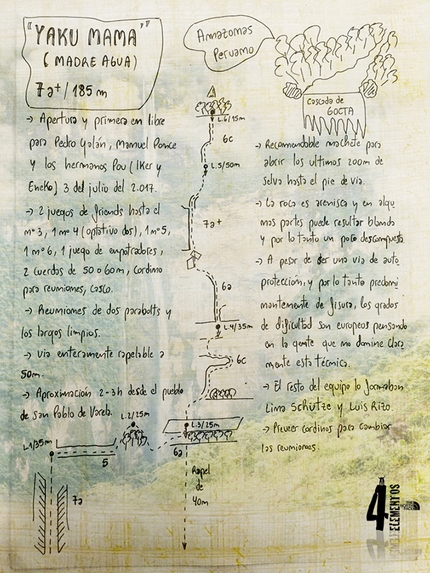 "YAKU MAMA"
(MADRE AGUA)
7a+/185m
Amazonas
Peruano
Cascada de
GOCTA
→ Apertura y primera en libre
para Pedro Galán, Manuel Ponce
y los hermanos Pou (Iker y
Eneko) 3 del julio del 2.017.
→ 2 juegos de friends hasta el
nº3, 1 nº4 (optativo dos), 1 nº5,
1 nº6, 1 juego de empotradores,
2 cuerdas de 50 o 60m, cordino
para reuniones, casco.
→ Reuniones de dos parabolts y
los largos limpios.
→ via enteramente rapelable a
50m.
→ Aproximación 2-3h desde el pueblo
de San Pablo de Varela.
→ Recomendable machete para
abrir los ultimos 200m de
selva hasta el pie de via.
→ La roca es arenisca y en algu
mas partes puede resultar blanda
y por lo tanto un poco descompuesta.
→ A pesar de ser una via de auto
protección, y por lo tanto predomi
mantemente de fisura, los grados
de dificultad son europeos pensando
en la gente que no domine clara
mente esta técnica.
→ El resto del equipo lo formaban
Lina Schütze y Luis Rizo.
→ Prever cordinos para cambiar
las reuniones.
L.6/15m
6c
L.5/50m
7a+
6a
L.4/35m
6c
L.3/25m
6a
L.2/25m
L.1/35m
5
7a
Rapel
de
40m
4+
ELEMENTOS